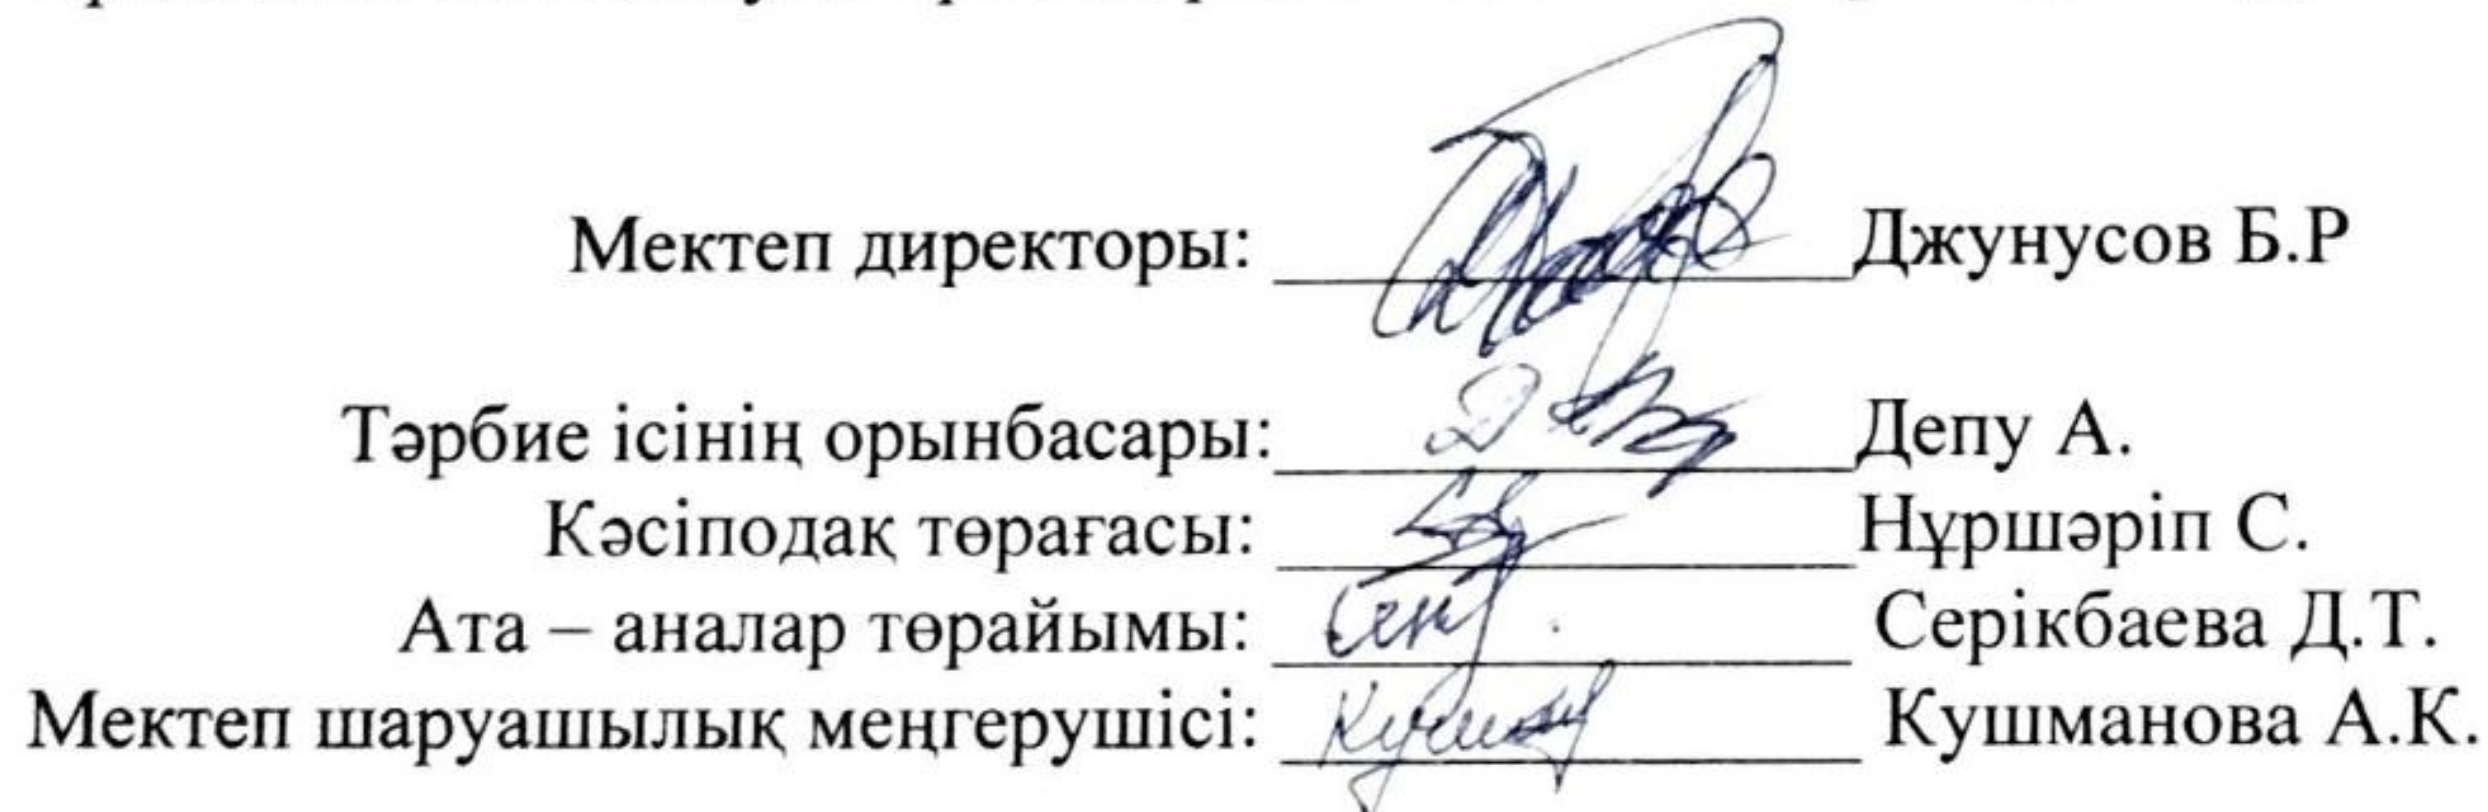 Мектеп директоры: Джунусов Б.Р
Тәрбие ісінің орынбасары: Депу А.
Кәсіподақ төрағасы: Нұршәріп С.
Ата – аналар төрайымы: Серікбаева Д.Т.
Мектеп шаруашылық меңгерушісі: Кушманова А.К.